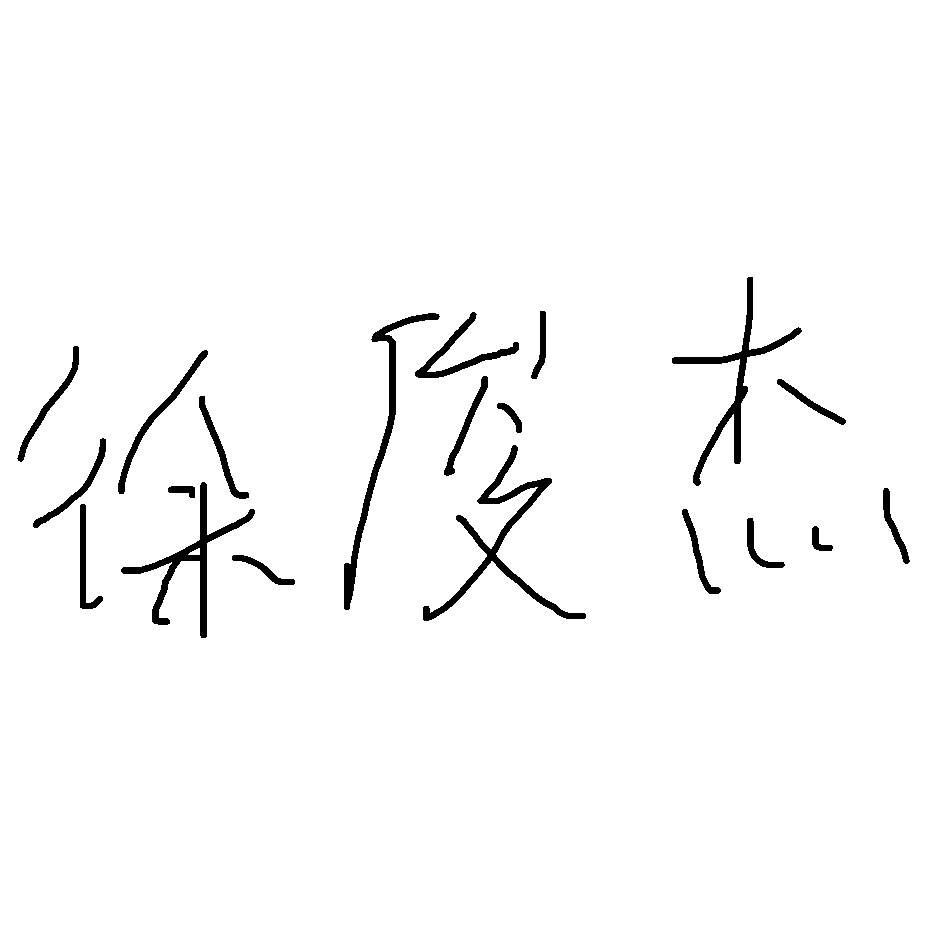 徐俊杰